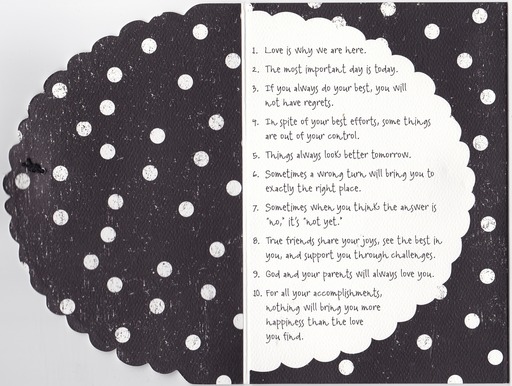 1. Love is why we are here.
2. The most important day is today.
3. If you always do your best, you will
not have regrets.
4. In spite of your best efforts, some things
are out of your control.
5. Things always look better tomorrow.
6. Sometimes a wrong turn will bring you to
exactly the right place.
7. Sometimes when you think the answer is
"no," it's "not yet."
8. True friends share your joys, see the best in
you, and support you through challenges.
9. God and your parents will always love you.
10. For all your accomplishments,
nothing will bring you more
happiness than the love
you find.